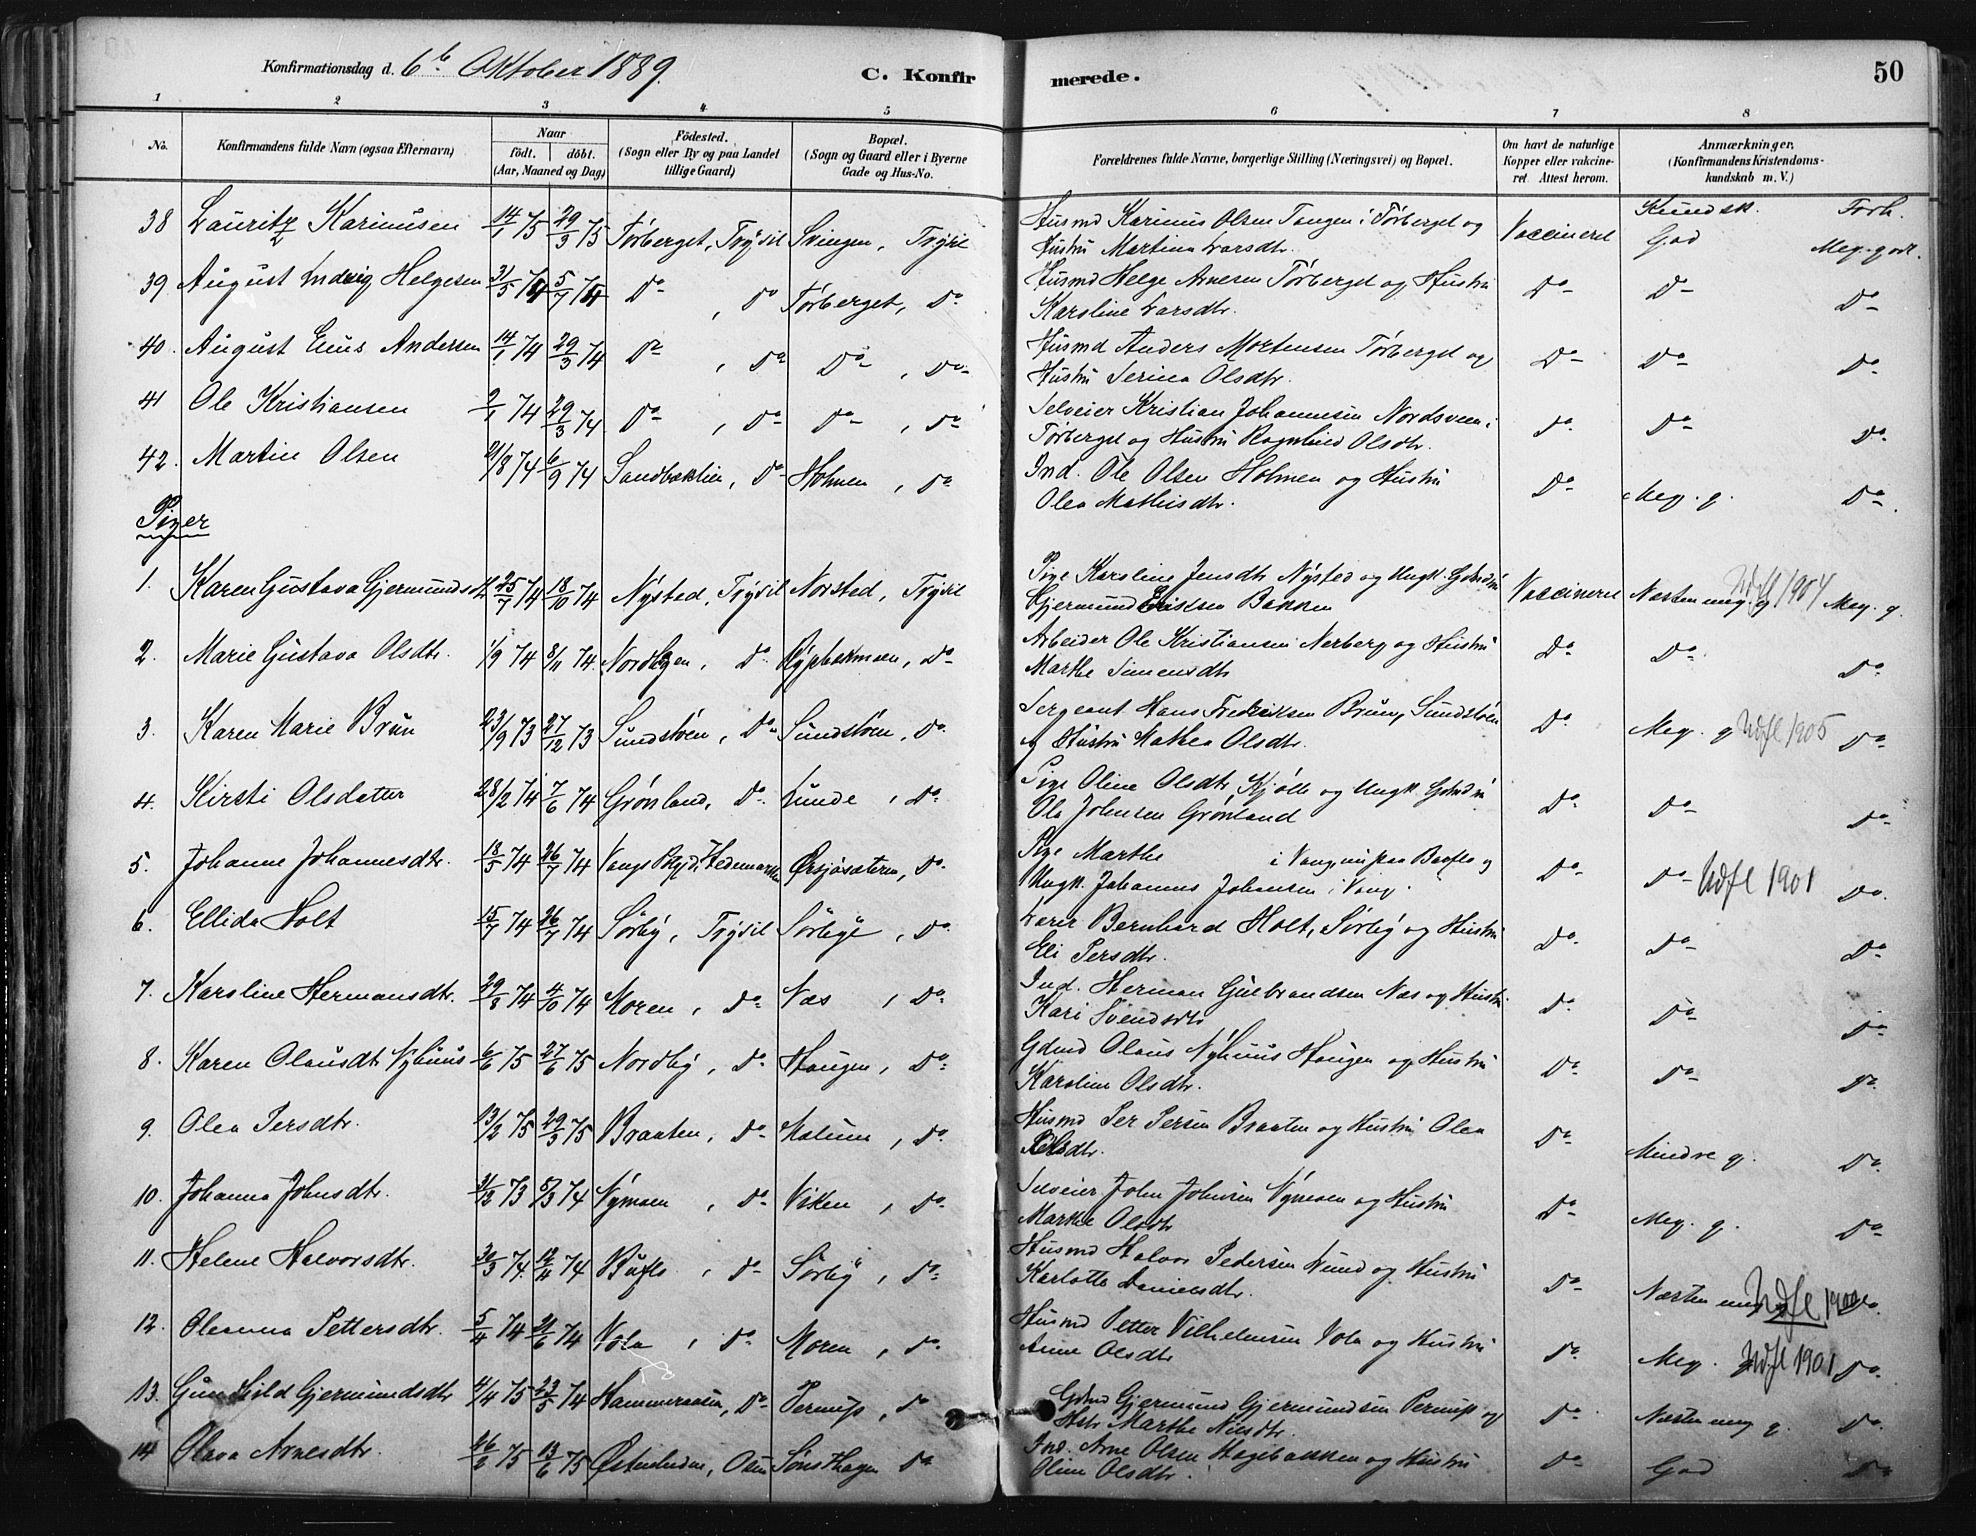 Konfirmationsdag d. 6te Oktober 1889.
C. Konfirmerede.
50
1 2 3 4 5 6 7 8
No. Konfirmandens fulde Navn (ogsaa Efternavn) Naar födt. döbt. (Aar, Maaned og Dag) Födested. (Sogn eller By og paa Landet tillige Gaard) Bopæl. (Sogn og Gaard eller i Byerne Gade og Hus-No. Forældrenes fulde Navne, borgerlige Stilling (Næringsvei) og Bopæl. Om havt de naturlige Kopper eller vakcineret. Attest herom. Anmærkninger. (Konfirmandens Kristendomskundskab m. V.)
Kundsk. Forh.
38 Lauritz Karinusen 14/1 75 29/3 75 Törberget, Trysil Svingen, Trysil Husmd Karinus Olsen Tangen i Törberget og Vaccineret God Meg. godt.
Hustru Martina Larsdtr.
39 August Ludvig Helgesen 31/5 74 5/7 74 Do , Do Törberget, Do Husmd Helge Arnesen Törberget og Hustru Do Do Do
Karoline Larsdtr.
40. August Andersen 14/1 74 29/3 74 Do , Do Do , Do Husmd Anders Mortensen Törberget og Do Do Do
Hustru Serina Olsdtr.
41 Ole Kristiansen 2/1 74 29/3 74 Do , Do Do , Do Selveier Kristian Johannesen Nordsveen i Do Do Do
Törberget og Hustru Ragnhild Olsdtr.
42. Martin Olsen 21/8 74 6/9 74 , Do Holmen , Do Ind. Ole Olsen Holmen og Hustru Do Meg. g. Do
Olea Mathisdtr.
Piger
1. Karen Gustava Gjermundsdt 25/7 74 18/10 74 Nysted, Trysil Norsted, Trysil Pige Karoline Jensdtr Nysted og Ungk. Vaccineret Næsten meg. g. Udfl 1904 Meg. g.
Gjermund Eriksen Bakken
2. Marie Gustava Olsdtr. 1/9 74 8/11 74 , Do , Do Arbeider Ole Kristiansen Nerberg og Hustru Do Do Do
Marthe Simensdtr
3. Karen Marie Brun 23/9 73 27/12 73 Sundstöen, Do Sundstöen, Do Sergeant Hans Fredriksen Brun, Sundstöen Do Meg. g Udfl 1905 Do
og Hustru Mathea Olsdtr.
4. Kirsti Olsdatter 28/2 74 7/6 74 Grönland, Do Lunde , Do Pige Oline Olsdtr, Kjölle og Ungk. Do Do Do
Ole Johnsen Grönland
5. Johanne Johannesdtr. 18/5 74 26/7 74 Vangs Hedemarken Ørsjösæteren, Do Pige Marthe i Vang og Do Do Udfl 1901 Do
Ungk. Johannes Johansen i Vang.
6. Ellida Holt 15/7 74 26/7 74 Sörby, Trysil Sörlige , Do Lærer Bernhard Holt, Sörby og Hustru Do Do Do
Eli Persdtr.
7. Karoline Hermansdtr. 29/8 74 4/10 74 Moren, Do Næs , Do Ind. Herman Gulbrandsen Næs og Hustru Do Do Do
Kari Svendsdtr
8. Karen Olausdt Nyhuus 6/6 75 27/6 75 Nordby, Do Haugen, Do Gdmd Olaus Nyhuus Haugen og Hustru Do Do Do
Karoline Olsdtr.
9. Olea Persdtr. 13/2 75 29/3 75 Braaten, Do , Do Husmd Per Persen Braaten og Hustru Olea Do Mindre g. Do
10. Johanna Johnsdtr. 31/12 73 5/3 74 Nymoen , Do Viken , Do Selveier John Johnsen Nymoen og Hustru Do Meg. g. Do
Marthe Olsdtr
11. Helene Halvorsdtr. 30/3 74. 12/4 74 Buflo , Do Sörby , Do Husmd Halvor Pedersen Lund og Hustru Do Næsten meg Udfl Do
Karlotte
12. Oleanna Pettersdtr. 5/4 74 21/6 74 Vola , Do Moren , Do Husmd Petter Vilhelmsen Vola og Hustru Do Meg. Udfl 1901 Do
Anne Olsdtr
13. Gunhild Gjermundsdtr 4/4 75 23/5 74 Hammeraasen, Do Pernup, Do Gdmd Gjermund Gjermundsen Pernup og Do Næsten meg g. Do
Hstr Marthe Nilsdtr.
14 Olava Arnesdtr. 26/2 75 13/6 75 , Osen Sönsthagen Do Ind. Arne Olsen Hagebakken og Hustru Do God Do
Oline Olsdtr.